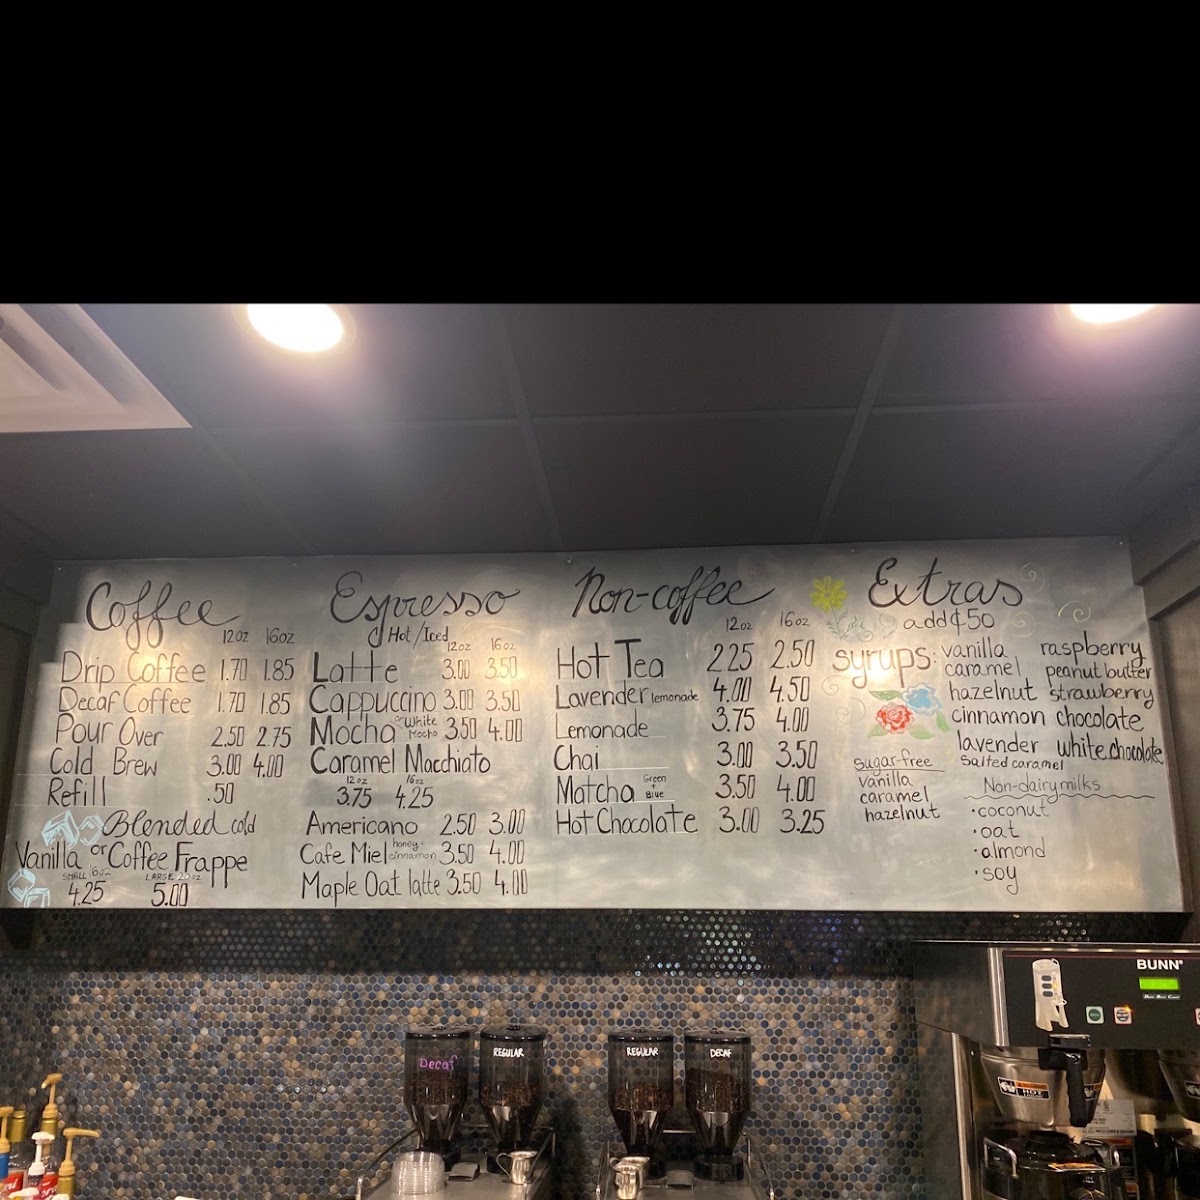 Coffee
12oz 16oz
Drip Coffee 1.70 1.85
Decaf Coffee 1.70 1.85
Pour Over 2.50 2.75
Cold Brew 3.00 4.00
Refill .50
Blended cold
Vanilla or Coffee Frappe
SMALL 16oz LARGE 20oz
4.25 5.00
Espresso
Hot/Iced
12oz 16oz
Latte 3.00 3.50
Cappuccino 3.00 3.50
Mocha or White Mocha 3.50 4.00
Caramel Macchiato
12oz 16oz
3.75 4.25
Americano 2.50 3.00
Cafe Miel honey + cinnamon 3.50 4.00
Maple Oat latte 3.50 4.00
Non-coffee
12oz 16oz
Hot Tea 2.25 2.50
Lavender lemonade 4.00 4.50
Lemonade 3.75 4.00
Chai 3.00 3.50
Matcha Green + Blue 3.50 4.00
Hot Chocolate 3.00 3.25
Extras
add ¢50
syrups: vanilla raspberry
caramel peanut butter
hazelnut strawberry
cinnamon chocolate
lavender white chocolate
salted caramel
sugar-free
vanilla
caramel
hazelnut
Non-dairy milks
• coconut
• oat
• almond
• soy
BUNN
Decaf
REGULAR
REGULAR
DECAF
HOT